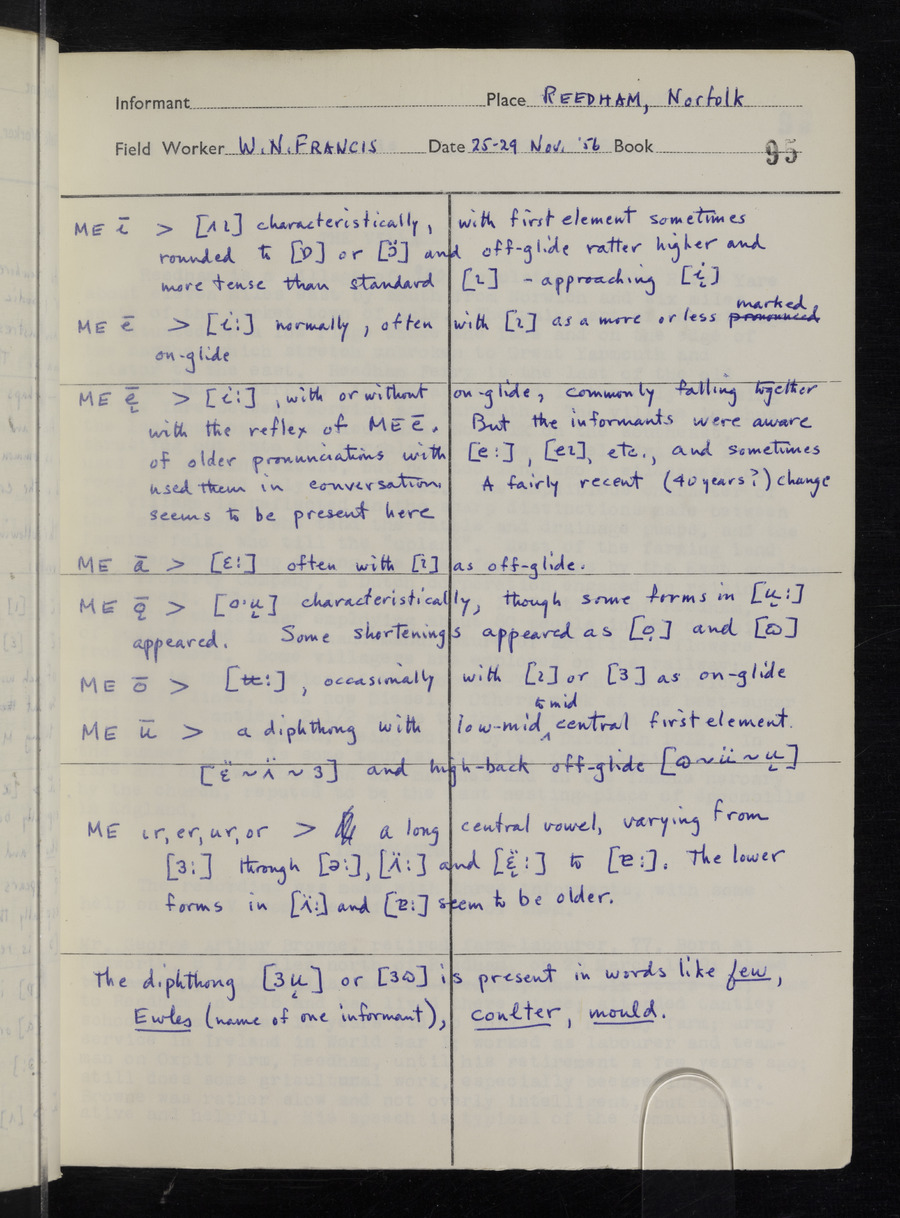 Informant Place REEDHAM, Norfolk
Field Worker W.N.FRANCIS Date 25-29 Nov. '56 Book 95
ME ī > [ʌɪ] characteristically, with first element sometimes
rounded to [ɒ] or [ɔ̈] and off-glide ratter higher and
more tense than standard [ɪ] - approaching [i̞]
ME ē > [i:] normally, often with [ɪ] as a more or less pronounced marked
on-glide
ME ę̄ > [i:], with or without on-glide, commonly falling together
with the reflex of ME ē. But the informants were aware
of older pronunciations with [e:], [eɪ], etc., and sometimes
used them in conversation. A fairly recent (40 years?) change
seems to be present here
ME ā > [ɛ:] often with [ɪ] as off-glide.
ME ǭ > [o·u̞] characteristically, though some forms in [u̞:]
appeared. Some shortenings appeared as [o̞] and [ɷ]
ME ō > [ʉ:], occasionally with [ɪ] or [ɜ] as on-glide
ME ū > a diphthong with low-mid to mid central first element.
[ɛ̞̈ ~ ʌ̈ ~ ɜ] and high-back off-glide [ɷ ~ ü ~ u̞]
ME ir, er, ur, or > a long central vowel, varying from
[ɜ:] through [ə:], [ʌ̈:] and [ɛ̞̈:] to [ɐ:]. The lower
forms in [ʌ̈:] and [ɐ:] seem to be older.
The diphthong [ɜu̞] or [ɜɷ] is present in words like few,
Ewles (name of one informant), coulter, mould.